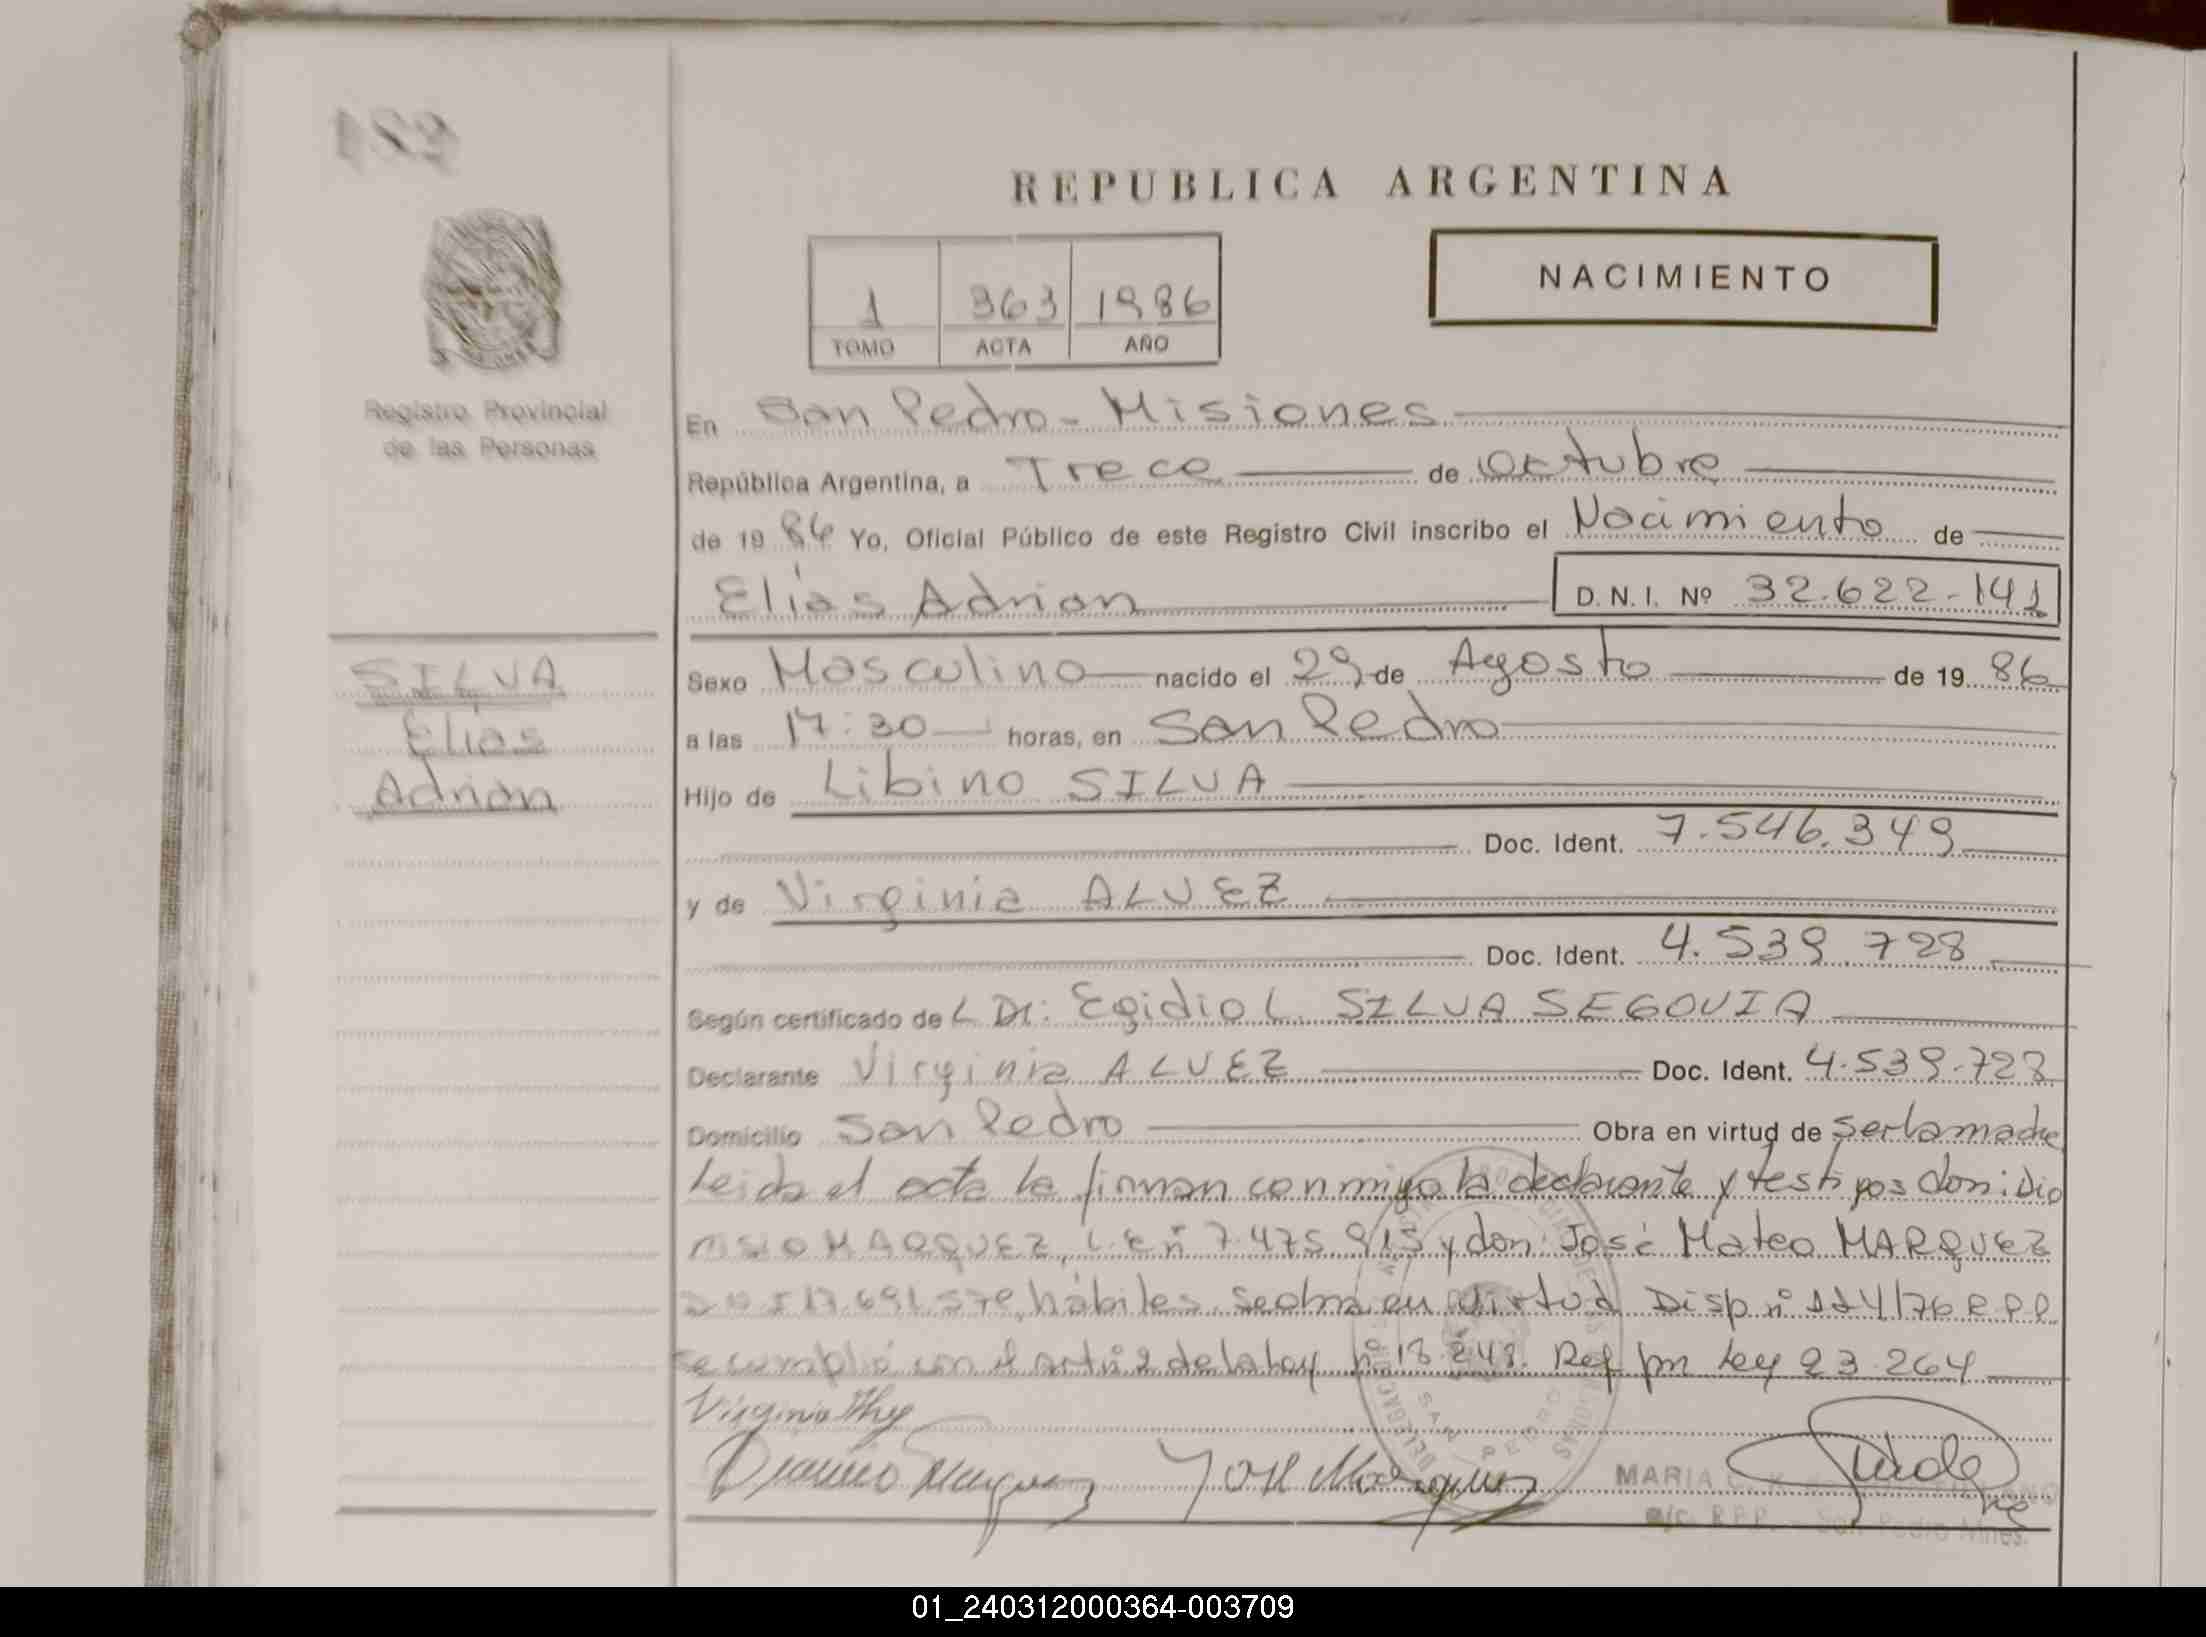 182
REPUBLICA ARGENTINA
NACIMIENTO
1 363 1986
TOMO ACTA AÑO
Registro Provincial
de las Personas
En San Pedro - Misiones
República Argentina, a Trece de Octubre
de 1986 Yo, Oficial Público de este Registro Civil inscribo el Nacimiento de
Elías Adrian D.N.I. Nº 32.622-141
SILVA
Elias
Adrian
Sexo Masculino nacido el 29 de Agosto de 1986
a las 17:30 horas, en San Pedro
Hijo de Libino SILVA
Doc. Ident. 7.546.349
y de Virginia ALVEZ
Doc. Ident. 4.539.728
Según certificado de L Dr: Egidio L. SILVA SEGOVIA
Declarante Virginia ALVEZ Doc. Ident. 4.539-728
Domicilio San Pedro Obra en virtud de ser la madre
Leida el acta la firman conmigo la declarante y testigos don: Dio
nisio MARQUEZ, L.E nº 7.475.915 y don: José Mateo MARQUEZ
DNI 17.691.578, hábiles. Se obra en virtud Disp nº 114/76 R.P.P.
se cumplió con el art nº 2 de la Ley nº 18.248. Ref por Ley 23.264
Virginia
Dionisio Marquez José Marquez
DELEGACION SAN PEDRO
MARIA C.
a/c. R.P.P. - San Pedro Mnes.
01_240312000364-003709